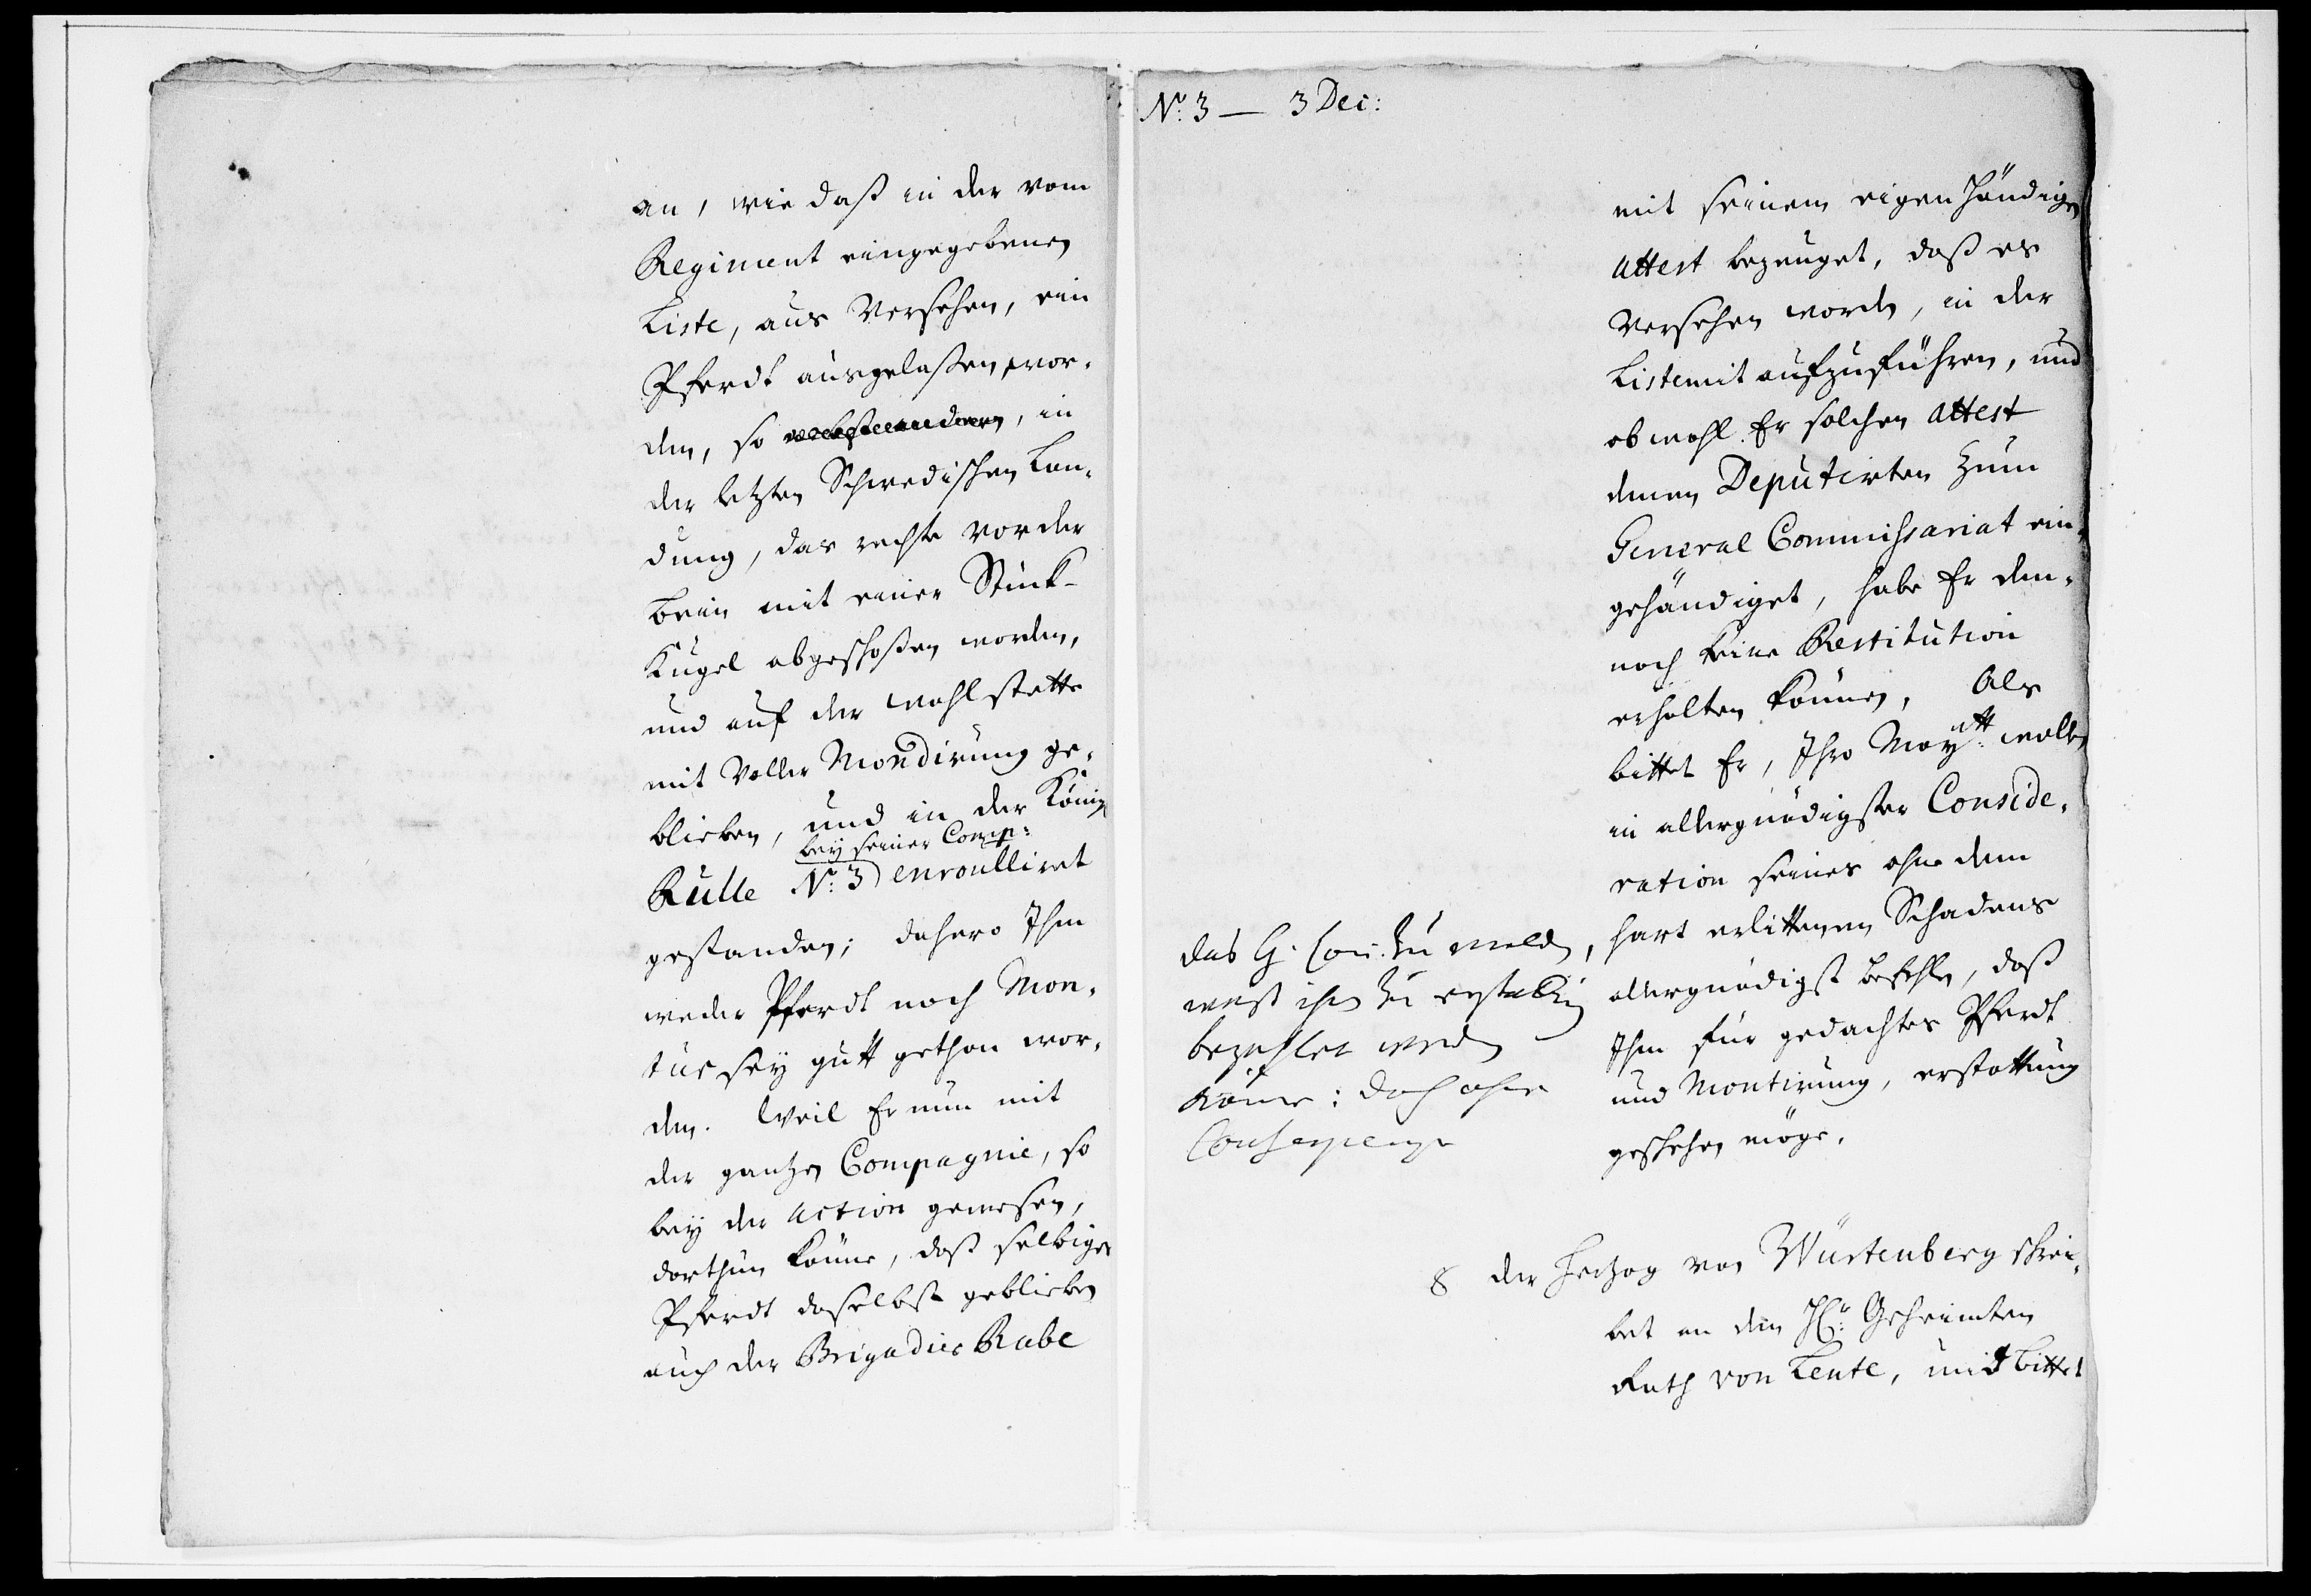 an, wie daß in der vom
Regiment eingegebenen
Liste, aus Versehen, ein
Pferdt ausgelaßen wor-
den, so , in
der letzten Schwedischen Lan-
dung, das rechte vorder
bein mit einer Stück-
Kugel abgeschoßen worden,
und auf der wahlstette
mit voller Mondirung ge-
blieben, und in der König
bey seiner Comp:
Rulle No: 3 enroulliret
gestanden; dahero Ihm
weder Pferdt noch Mon-
tur sey gutt gethan wor-
den. Weil Er nun mit
der gantzen Compagnie, so
bey der Action gewesen,
darthun könne, daß selbiges
Pferdt daselbst geblieben
auch der Brigadier Rabe
No: 3 — 3 Dec:
mit seinem eigenhändigen
Attest bezeuget, daß es
versehen worden, in der
Liste mit aufzuführen, und
obwohl Er solchen Attest
denen Deputirten zum
General Commissariat ein-
gehändiget, habe Er den-
noch keine Restitution
erhalten können, Als
bittet Er, Ihro Maytt: wollen
in allergnädigster Conside-
ration seines ohne dem
hart erlittenen Schadens
allergnädigst befehlen, daß
Ihm für gedachtes Pferdt
und Montirung, erstattung
geschehen möge.
das G. Com: zu melden,
waß ihm zu
bezahlet werden
könne: doch ohne
Consequence
8 der Hertzog von Würtenberg schrei-
bet an den Hr: Geheimten
Rath von Lente, und bittet